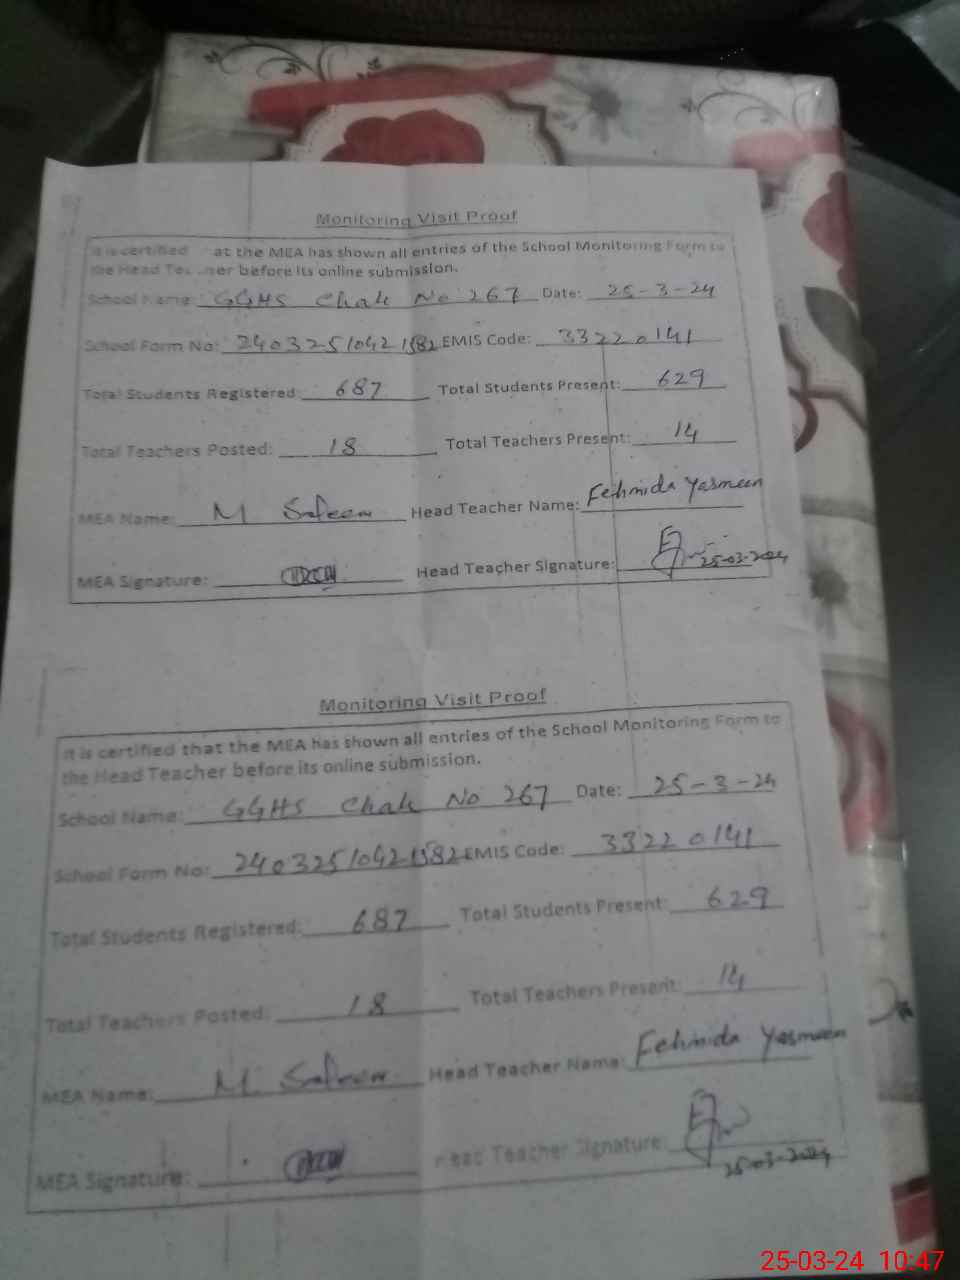 Monitoring Visit Proof
It is certified at the MEA has shown all entries of the School Monitoring Form to
the Head Teacher before its online submission.
School Name: GGHS Chak No 267 Date: 25-3-24
School Form No: 2403251042 1582 EMIS Code: 33220141
Total Students Registered: 687 Total Students Present: 629
Total Teachers Posted: 18 Total Teachers Present: 14
MEA Name: M Saleem Head Teacher Name: Fehmida Yasmeen
MEA Signature: Head Teacher Signature: 25-03-2024
Monitoring Visit Proof
It is certified that the MEA has shown all entries of the School Monitoring Form to
the Head Teacher before its online submission.
School Name: GGHS Chak No 267 Date: 25-3-24
School Form No: 2403251042 1582 EMIS Code: 33220141
Total Students Registered: 687 Total Students Present: 629
Total Teachers Posted: 18 Total Teachers Present: 14
MEA Name: M Saleem Head Teacher Name: Fehmida Yasmeen
MEA Signature: Head Teacher Signature: 25-03-2024
25-03-24 10:47